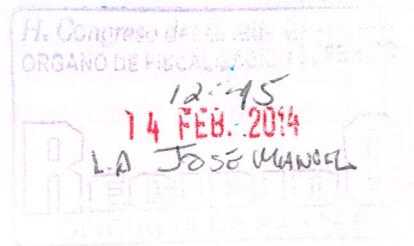 H. Congreso del
ORGANO DE FISCALIZACION SUPERIOR
12:45
14 FEB. 2014
L.A JOSE MANUEL
RECIBIDO
OFICIALIA DE PARTES